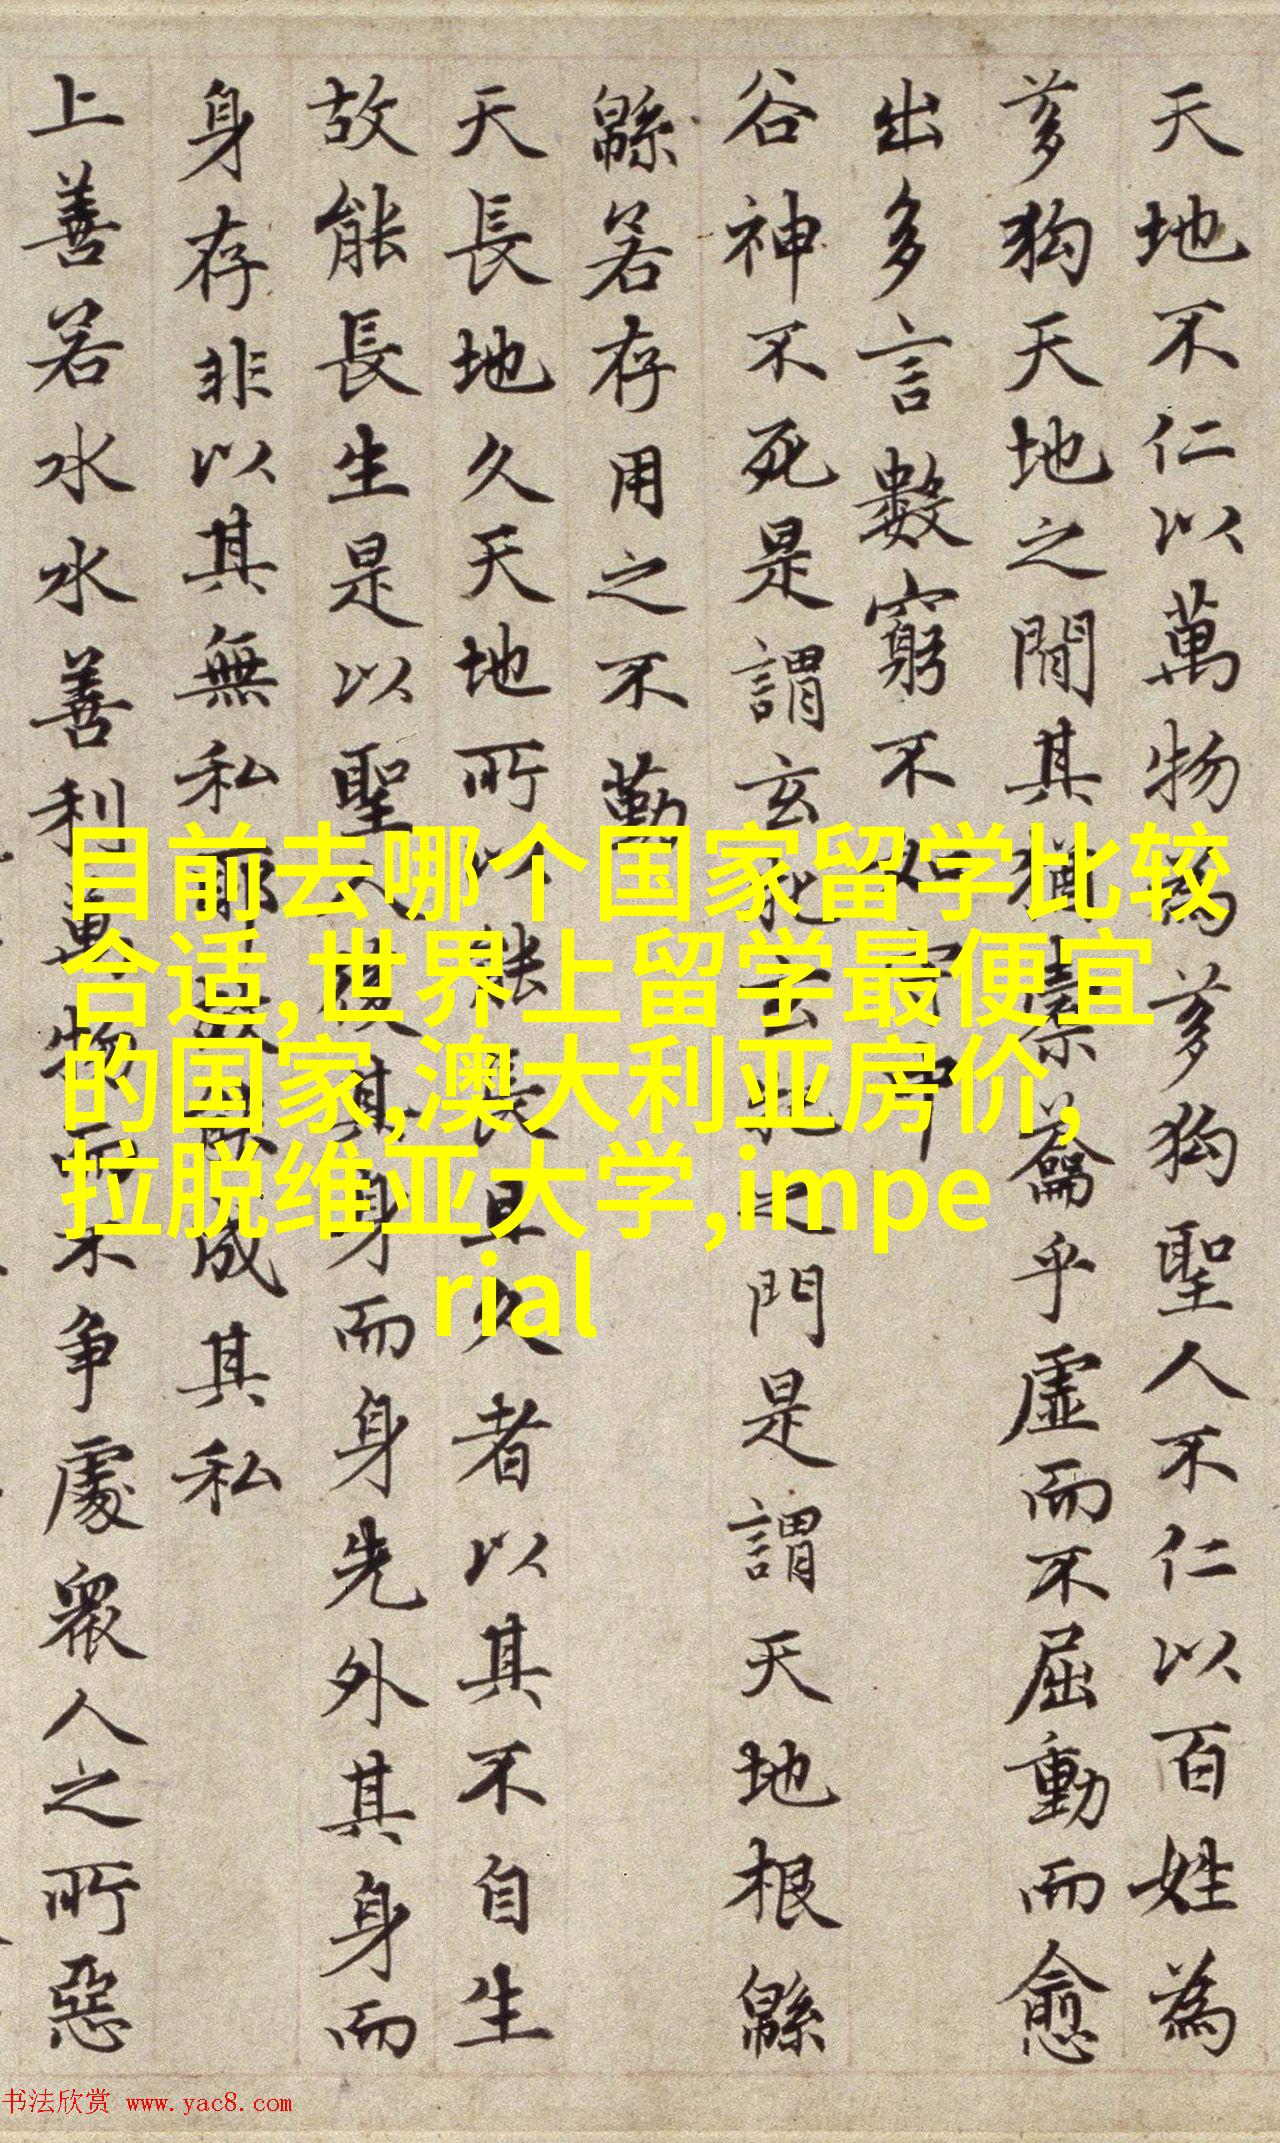 天地不仁以萬物為芻狗聖人不仁以百姓為
芻狗天地之閒其猶橐籥乎虛而不屈動而愈
出多言數窮不如守中
谷神不死是謂玄牝玄牝之門是謂天地根緜
緜若存用之不勤
天長地久天地所以能長且久者以其不自生
故能長生是以聖人後其身而身先外其身而
身存非以其無私耶故能成其私
上善若水水善利萬物而不争處衆人之所惡
目前去哪个国家留学比较
合适,世界上留学最便宜
的国家,澳大利亚房价,
拉脱维亚大学,impe
rial
书法欣赏 www.yac8.com